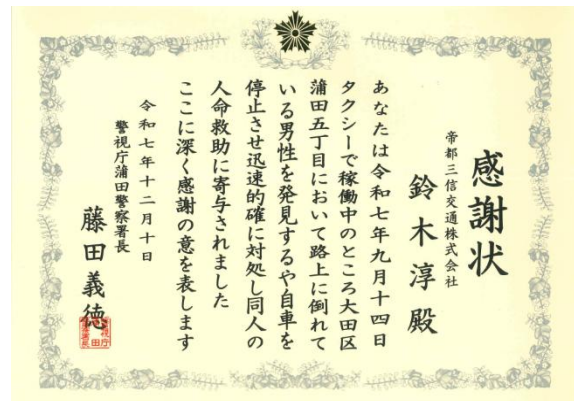 感謝状
帝都三信交通株式会社
鈴木淳殿
あなたは令和七年九月十四日
タクシーで稼働中のところ大田区
蒲田五丁目において路上に倒れて
いる男性を発見するや自車を
停止させ迅速的確に対処し同人の
人命救助に寄与されました
ここに深く感謝の意を表します
令和七年十二月十日
警視庁蒲田警察署長
藤田義徳